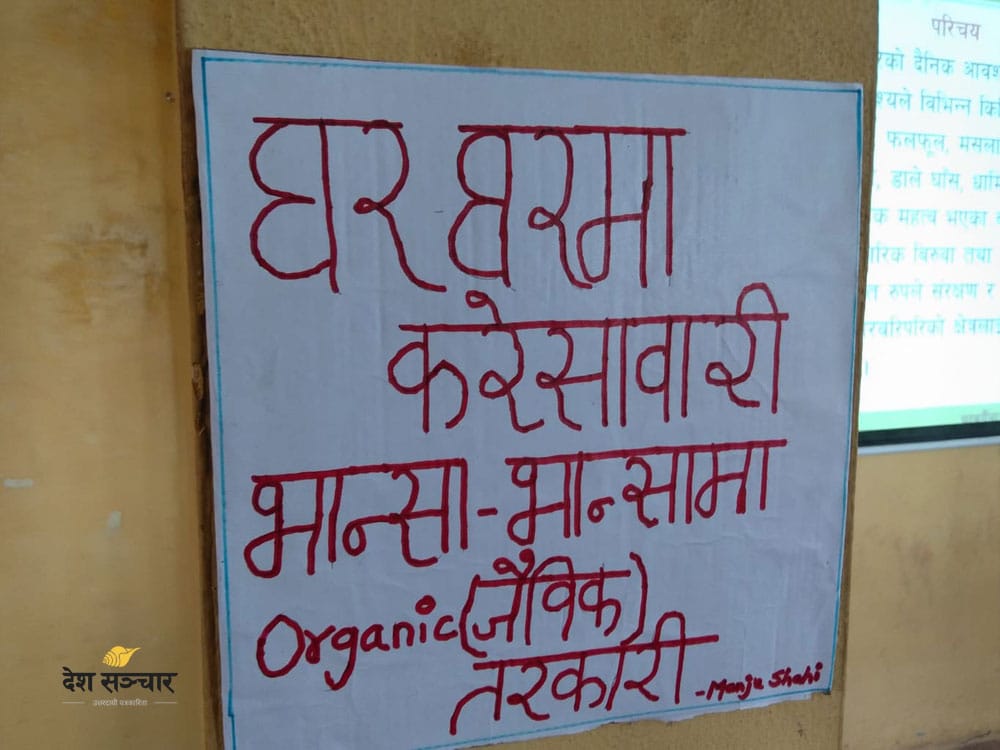 घर घरमा
करेसावारी
भान्सा-भान्सामा
Organic (जैविक)
तरकारी
-Manju Shahi
परिचय
रको दैनिक आवश
श्यले विभिन्न कि
फलफूल, मसला
, डाले घाँस, धार्मि
क महत्व भएका
ारिक बिरुवा तथा
त रुपले संरक्षण र
रवरिपरिको क्षेत्रलाई
देश सञ्चार
उत्तरदायी पत्रकारिता